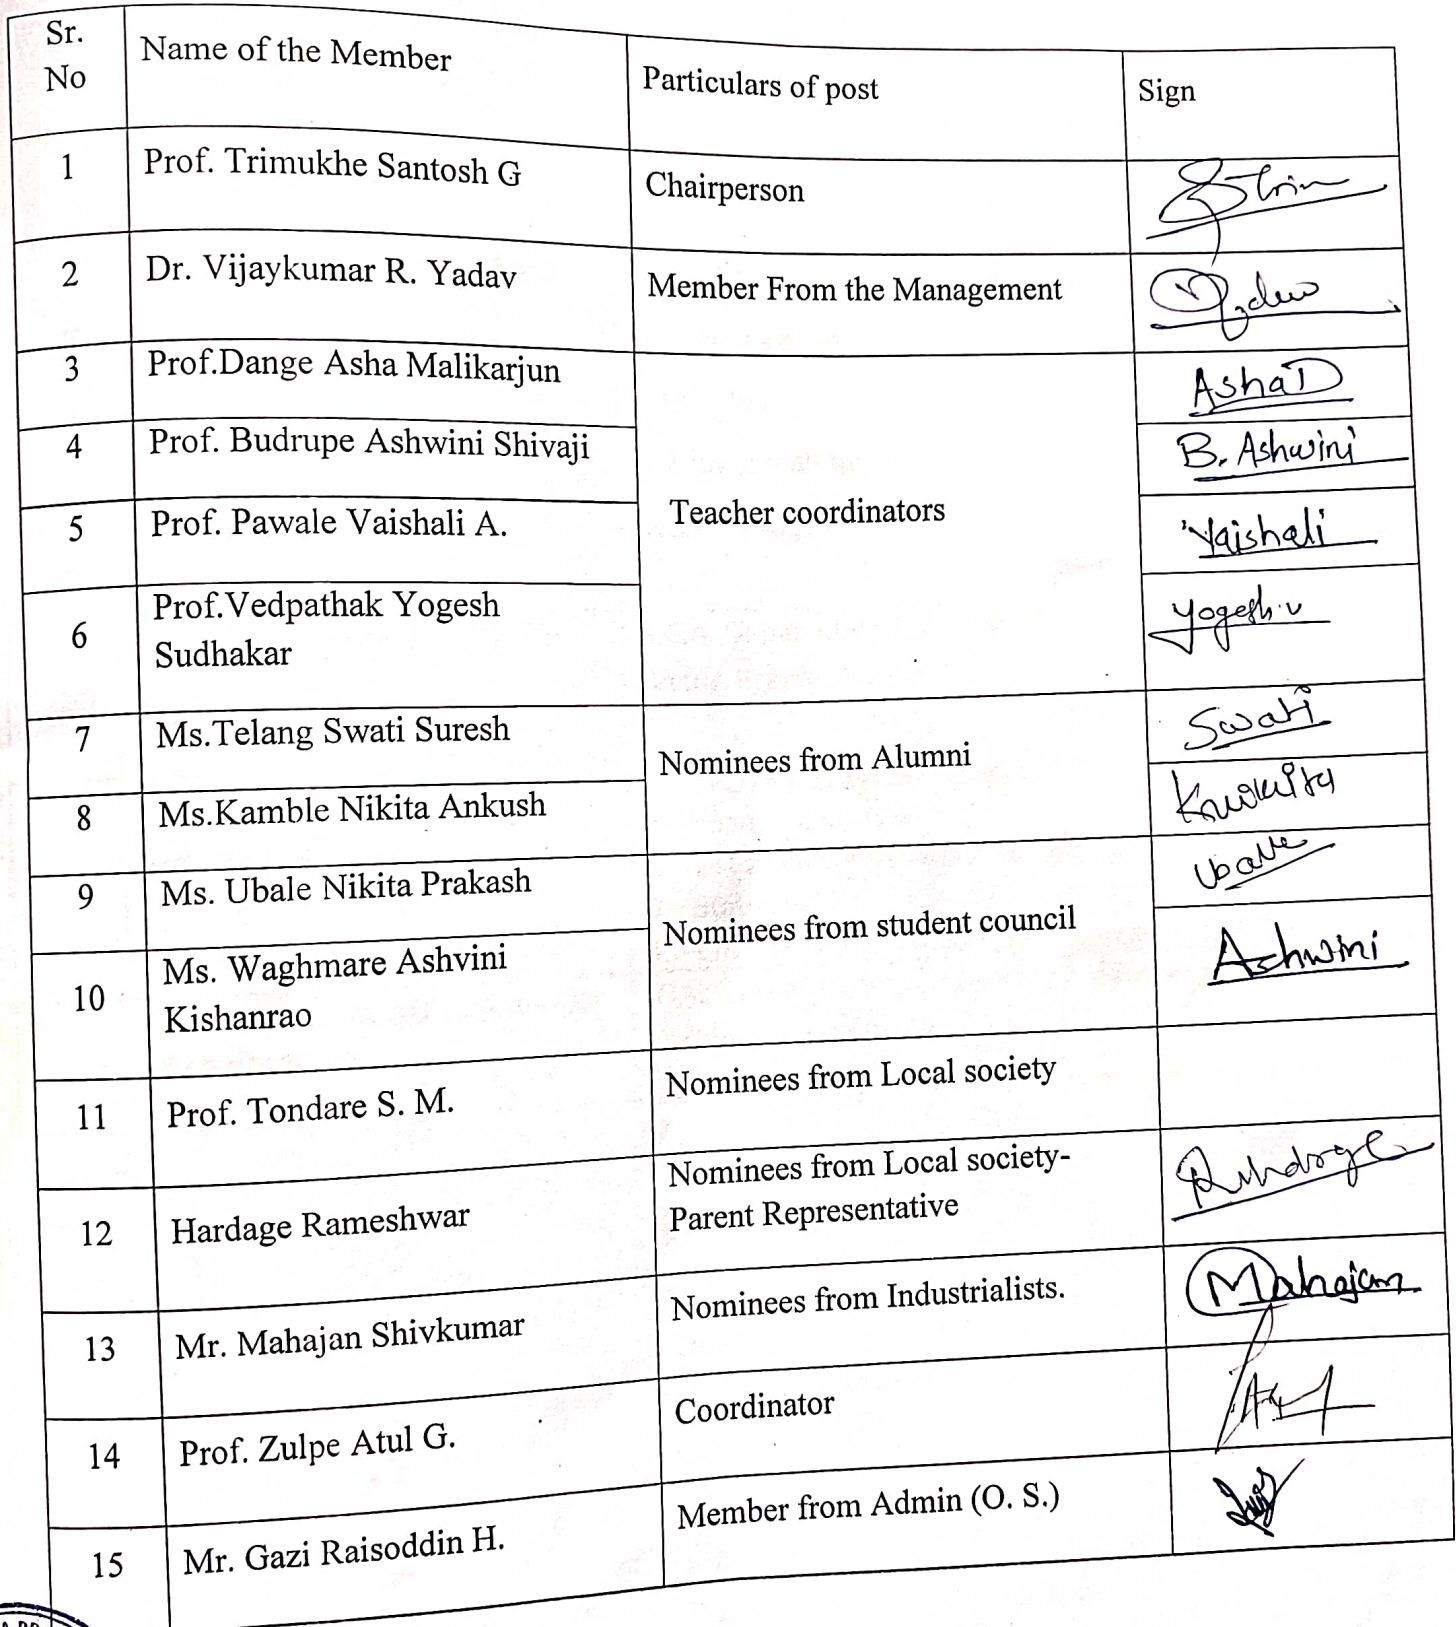 Sr.
No
Name of the Member
Particulars of post
Sign
1
Prof. Trimukhe Santosh G
Chairperson
2
Dr. Vijaykumar R. Yadav
Member From the Management
3
Prof.Dange Asha Malikarjun
Teacher coordinators
AshaD
4
Prof. Budrupe Ashwini Shivaji
B. Ashwini
5
Prof. Pawale Vaishali A.
Vaishali
6
Prof.Vedpathak Yogesh
Sudhakar
Yogesh.v
7
Ms.Telang Swati Suresh
Nominees from Alumni
Swati
8
Ms.Kamble Nikita Ankush
9
Ms. Ubale Nikita Prakash
Nominees from student council
Ubale
10
Ms. Waghmare Ashvini
Kishanrao
Ashwini
11
Prof. Tondare S. M.
Nominees from Local society
12
Hardage Rameshwar
Nominees from Local society-
Parent Representative
13
Mr. Mahajan Shivkumar
Nominees from Industrialists.
Mahajan
14
Prof. Zulpe Atul G.
Coordinator
15
Mr. Gazi Raisoddin H.
Member from Admin (O. S.)